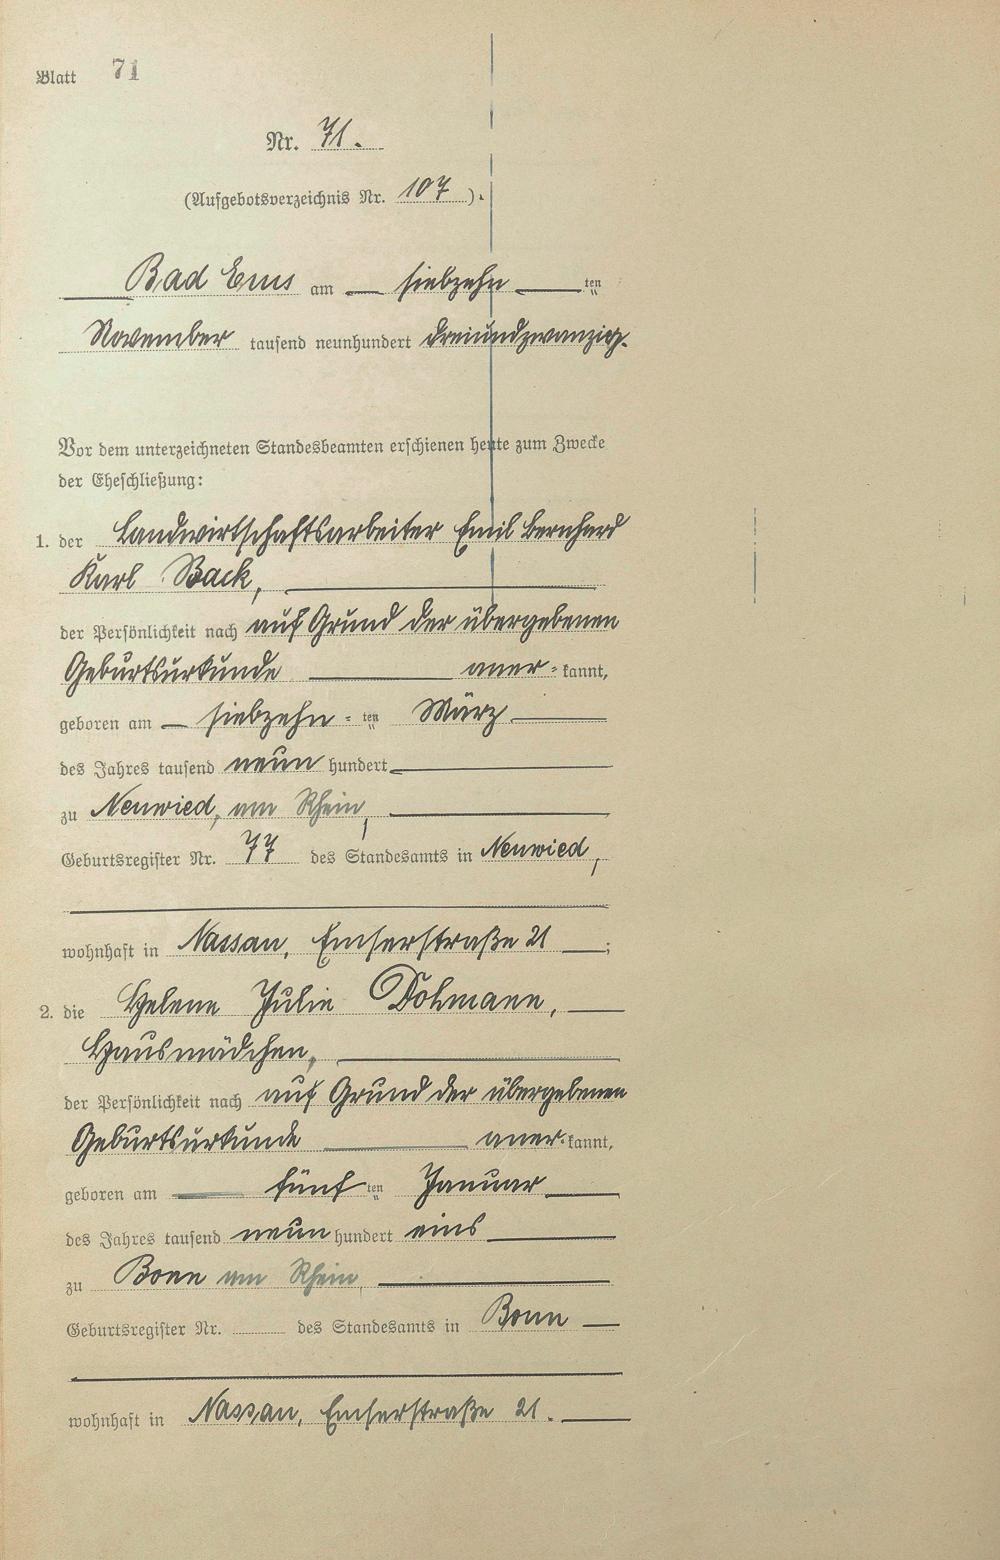 Blatt 71
Nr. 71.
(Aufgebotsverzeichnis Nr. 107).
Bad Ems am siebzehn ten
November tausend neunhundert dreiundzwanzig.
Vor dem unterzeichneten Standesbeamten erschienen heute zum Zwecke
der Eheschließung:
1. der Landwirtschaftsarbeiter Emil Bernhard
Karl Back,
der Persönlichkeit nach auf Grund der übergebenen
Geburtsurkunde aner- kannt,
geboren am siebzehn - ten März
des Jahres tausend neun hundert
zu Neuwied, am Rhein,
Geburtsregister Nr. 77 des Standesamts in Neuwied,
wohnhaft in Nassau, Emserstraße 21 ;
2. die Helene Julie Dohmann,
Hausmädchen,
der Persönlichkeit nach auf Grund der übergebenen
Geburtsurkunde aner- kannt,
geboren am fünf ten Januar
des Jahres tausend neun hundert eins
zu Bonn am Rhein,
Geburtsregister Nr. des Standesamts in Bonn
wohnhaft in Nassau, Emserstraße 21.